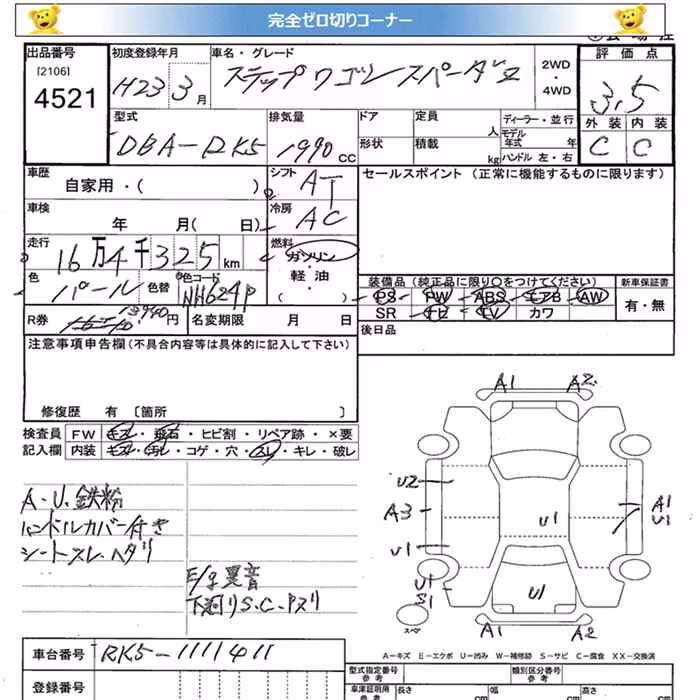 完全ゼロ切りコーナー
出品番号 初度登録年月 車名・グレード 2WD・4WD 評価点
[2106] 4521 H23 3月 ステップワゴンスパーダZ 3.5
型式 排気量 ドア 定員 人 ディーラー・並行 外装 内装
DBA-RK5 1990cc 形状 積載 kg モデル年式 年 ハンドル 左・右 C C
車歴 シフト AT セールスポイント (正常に機能するものに限ります)
自家用・( )
車検 年 月(日) 冷房 AC
走行 16万4千325km 燃料 ガソリン・軽油・( )
色 パール 色替 色コード NH624P
装備品 (純正品に限り○をつけてください) 新車保証書
PS PW ABS エアB AW 有・無
SR ナビ TV カワ
R券 13940円 名変期限 月 日 後日品
注意事項申告欄(不具合内容等は具体的に記入して下さい)
修復歴 有 〔箇所 〕
検査員 FW キズ・飛石・ヒビ割・リペア跡・×要
記入欄 内装 キズ・汚レ・コゲ・穴・スレ・キレ・破レ
A.U.鉄粉
ハンドルカバー付き
シートスレ、ヘタリ
E/g異音
下廻りS.C.Pズリ
A1 A2
U2
A3 U1 A1 U1
U1
U1 S1 U1
スペア A1 A2
A-キズ E-エクボ U-凹み W-補修跡 S-サビ C-腐食 XX-交換済
車台番号 RK5-1111411
登録番号
型式指定番号 参考 類別区分番号 参考
車庫証明用 参考 長さ cm 幅 cm 高さ cm